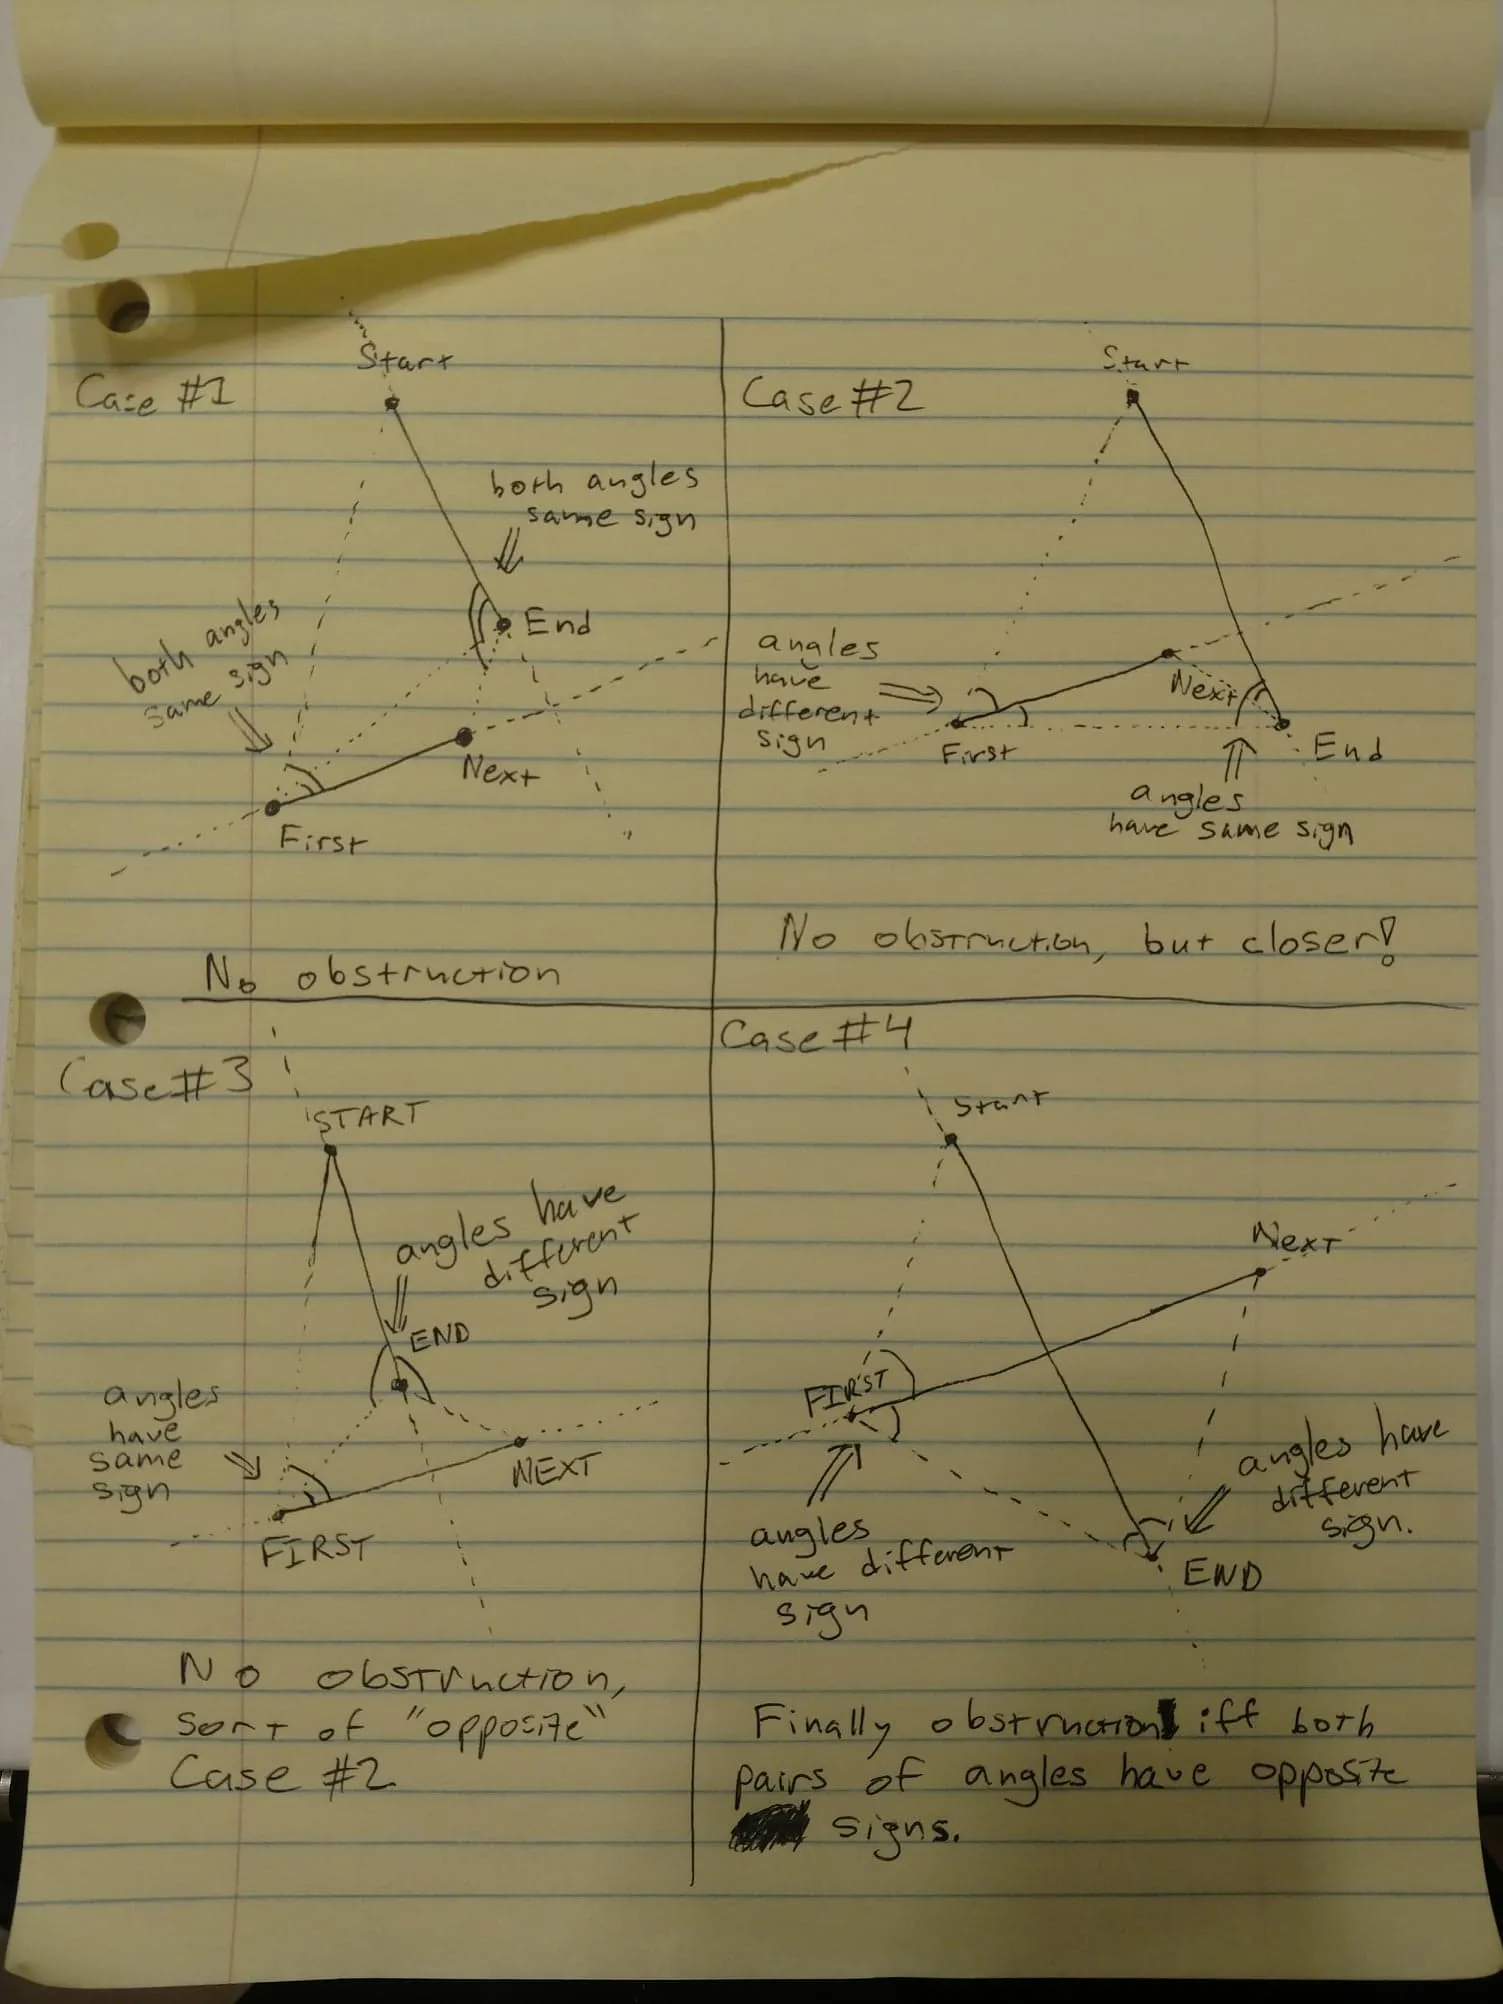 Case #1
Start
both angles
same sign
End
both angles
same sign
Next
First
No obstruction
Case #2
Start
angles
have
different
sign
Next
First
End
angles
have same sign
No obstruction, but closer!
Case #3
START
angles have
different
sign
END
angles
have
same
sign
NEXT
FIRST
No obstruction,
sort of "opposite"
Case #2
Case #4
Start
Next
FIRST
angles have
different
sign.
angles
have different
sign
END
Finally obstruction iff both
pairs of angles have opposite
signs.